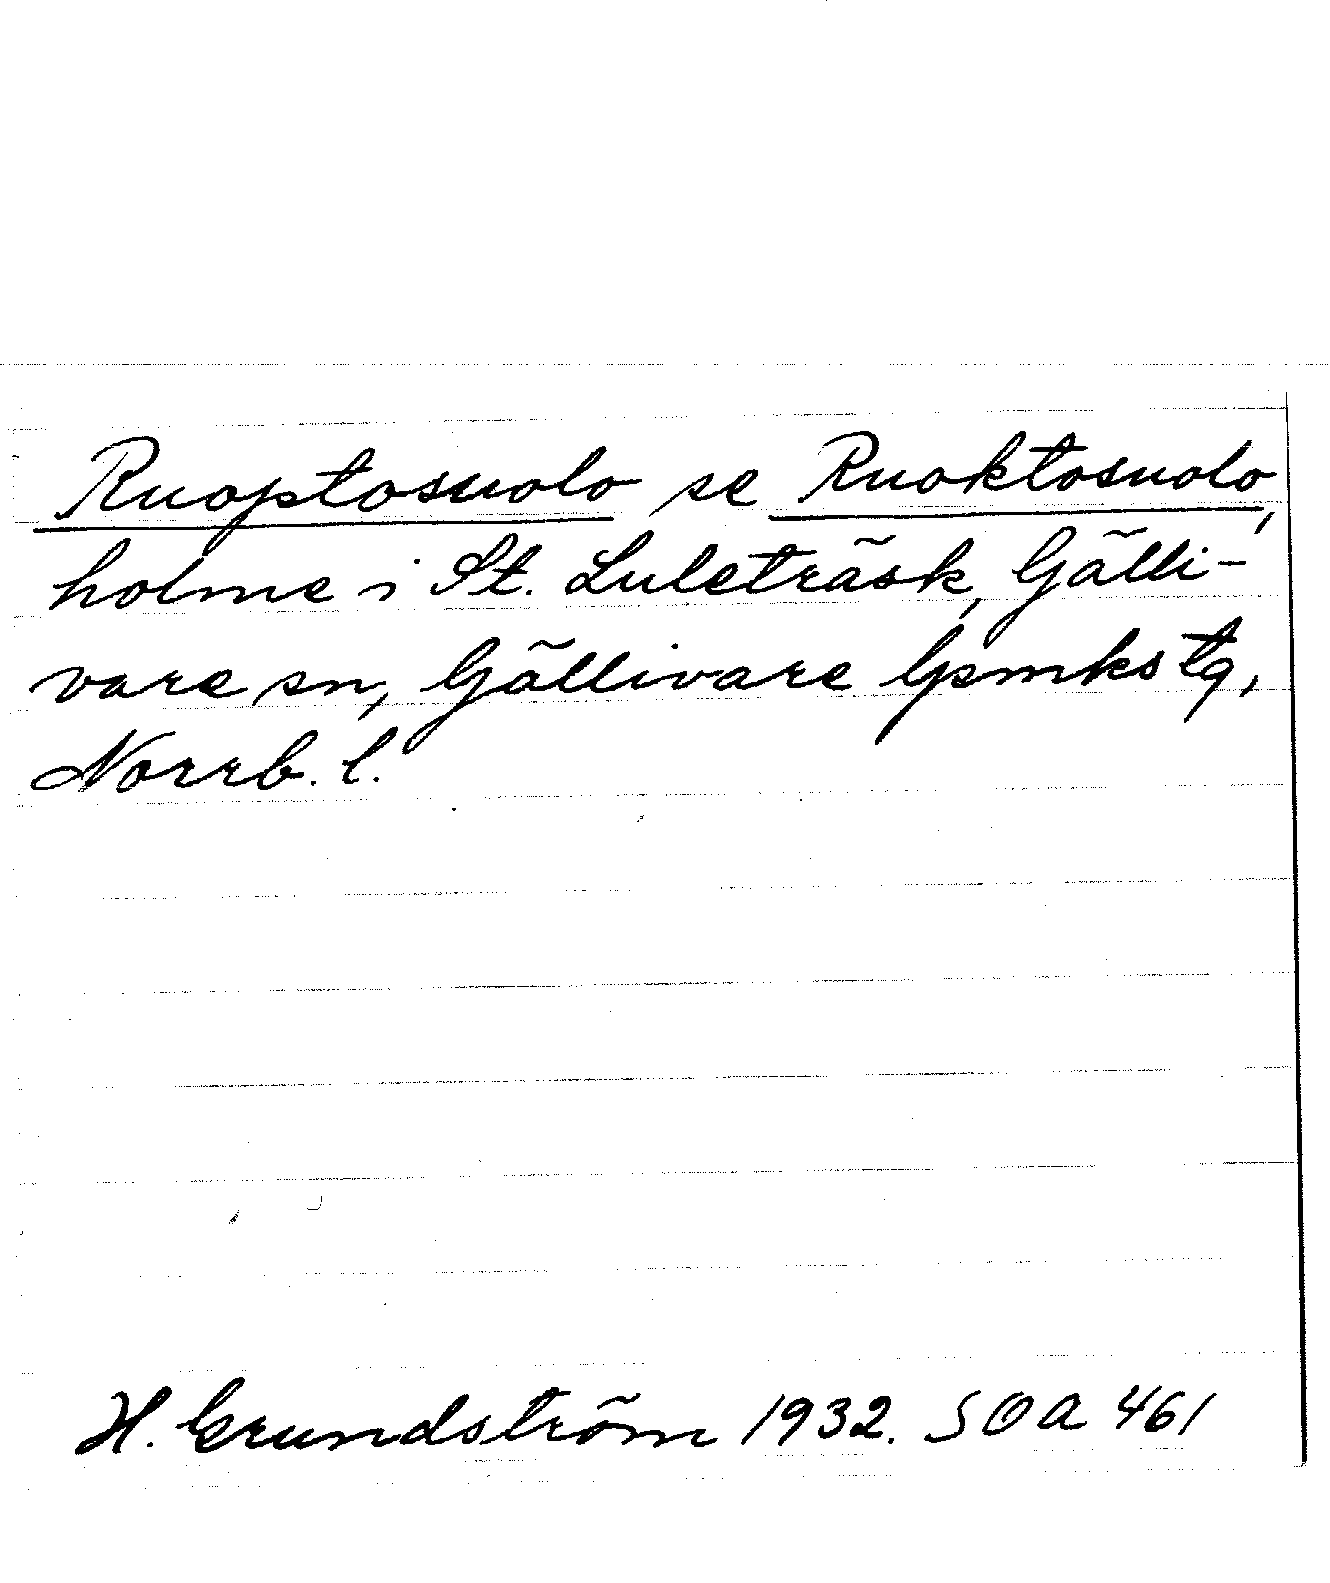 Ruoptosuolo se Ruoktosuolo,
holme i St. Luleträsk, Gälli-
vare sn, Gällivare lpmks tg,
Norrb. l.
H. Grundström 1932. SOA 461